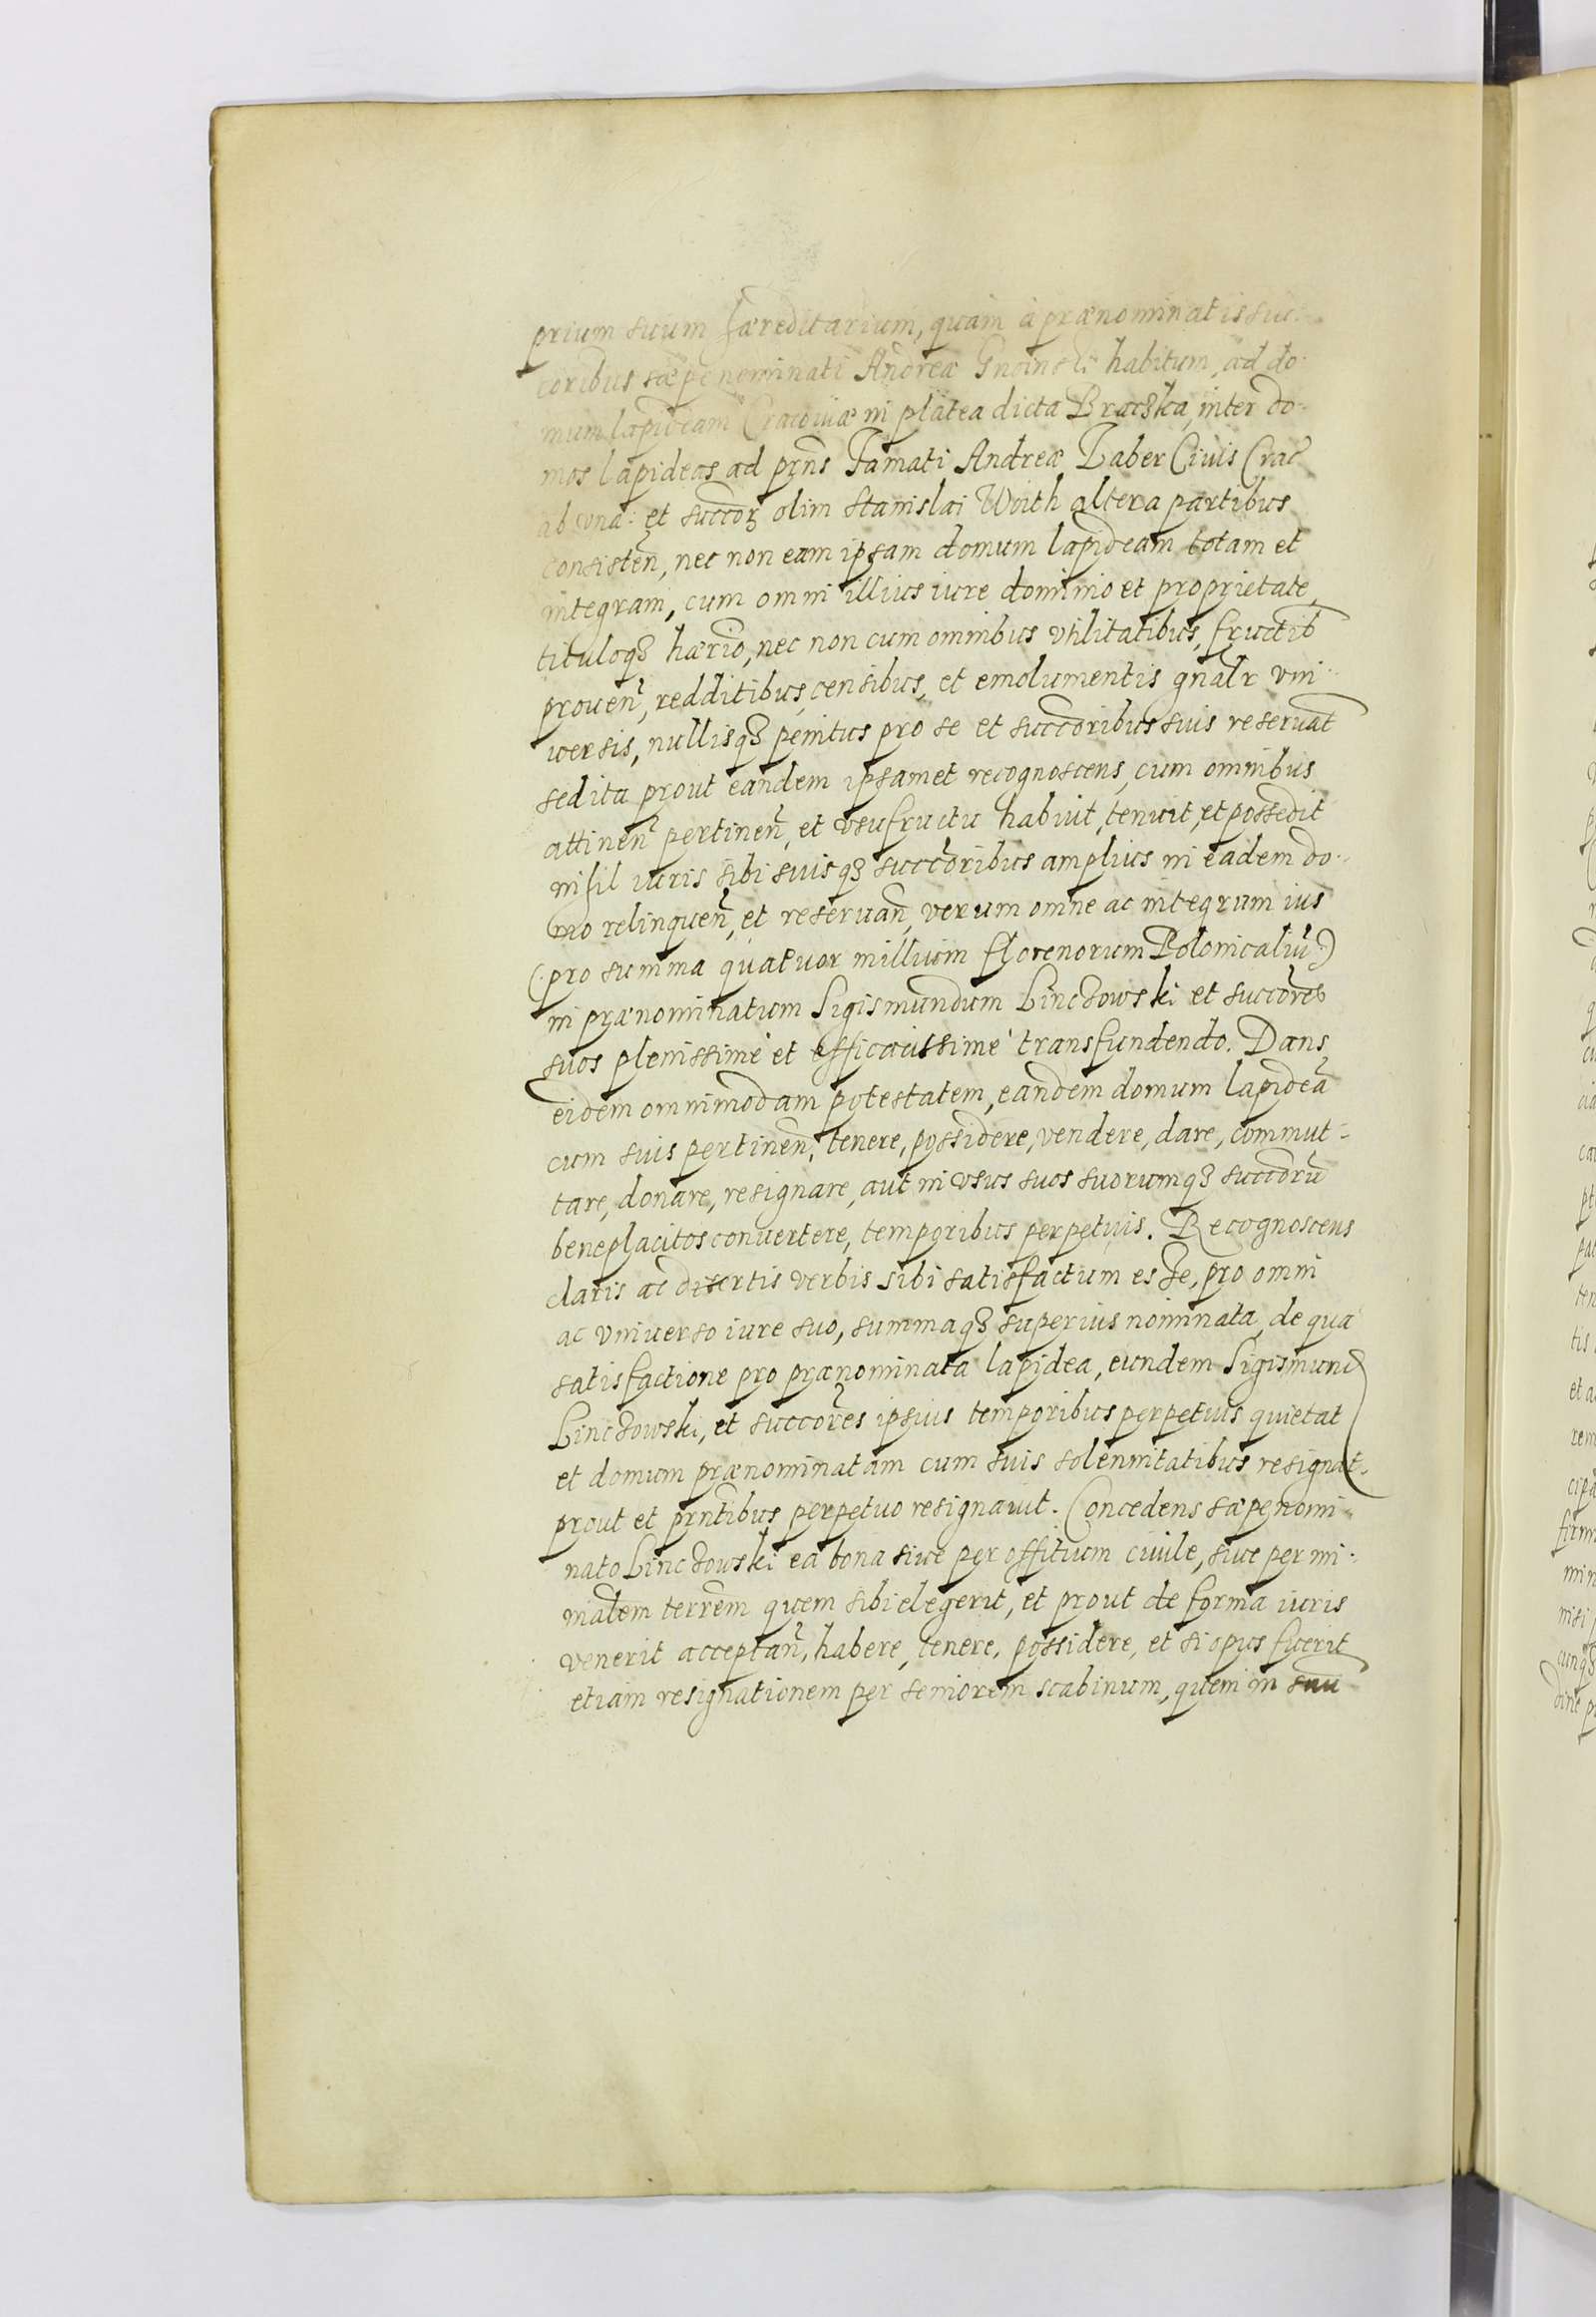 prium suum hæreditarium, quam à prænominatis suc:
coribus sæpenominati Andreæ Gnoinski habitum, ad do:
mum lapideam Cracouiæ in platea dicta Braczka, inter do:
mos lapideas ad prns Famati Andreæ Zaber Ciuis Crac
ab vna: et succor olim Stanislai Woith altera partibus
consisten, nec non eam ipsam domum lapideam totam et
integram, cum omni illius iure dominio et proprietate,
tituloqz hærio, nec non cum omnibus vtilitatibus, fructib
prouen, redditibus, censibus, et emolumentis gnalr vni:
uersis, nullisqz penitus pro se et succoribus suis reseruat
sed ita prout eandem ipsamet recognoscens, cum omnibus
attinen pertinen, et vsufructu habuit, tenuit, et possedit
nihil iuris sibi suisqz succoribus amplius in eadem do:
mo relinquen, et reseruan, verum omne ac integrum ius
(: pro summa quatuor millium florenorum Polonicaliu :)
in prænominatum Sigismundum Linczowski et succores
suos plenissimè et efficacissimè transfundendo. Dans
eidem omnimodam potestatem, eandem domum lapidea
cum suis pertinen, tenere, possidere, vendere, dare, commut:
tare, donare, resignare, aut in vsus suos suorumqz succoru
beneplacitos conuertere, temporibus perpetuis. Recognoscens
claris ac disertis verbis sibi satisfactum esse, pro omni
ac vniuerso iure suo, summaqz superius nominata, de qua
satisfactione pro prænominata lapidea, eundem Sigismund
Linczowski, et succores ipsius temporibus perpetuis quietat
et domum prænominatam cum suis solennitatibus resignat,
prout et prntibus perpetuo resignauit. Concedens sæpenomi:
nato Linczowski ea bona siue per offitium ciuile, siue per mi:
nialem terrem quem sibi elegerit, et prout de forma iuris
venerit acceptan, habere, tenere, possidere, et si opus fuerit
etiam resignationem per seniorem scabinum, quem in suu